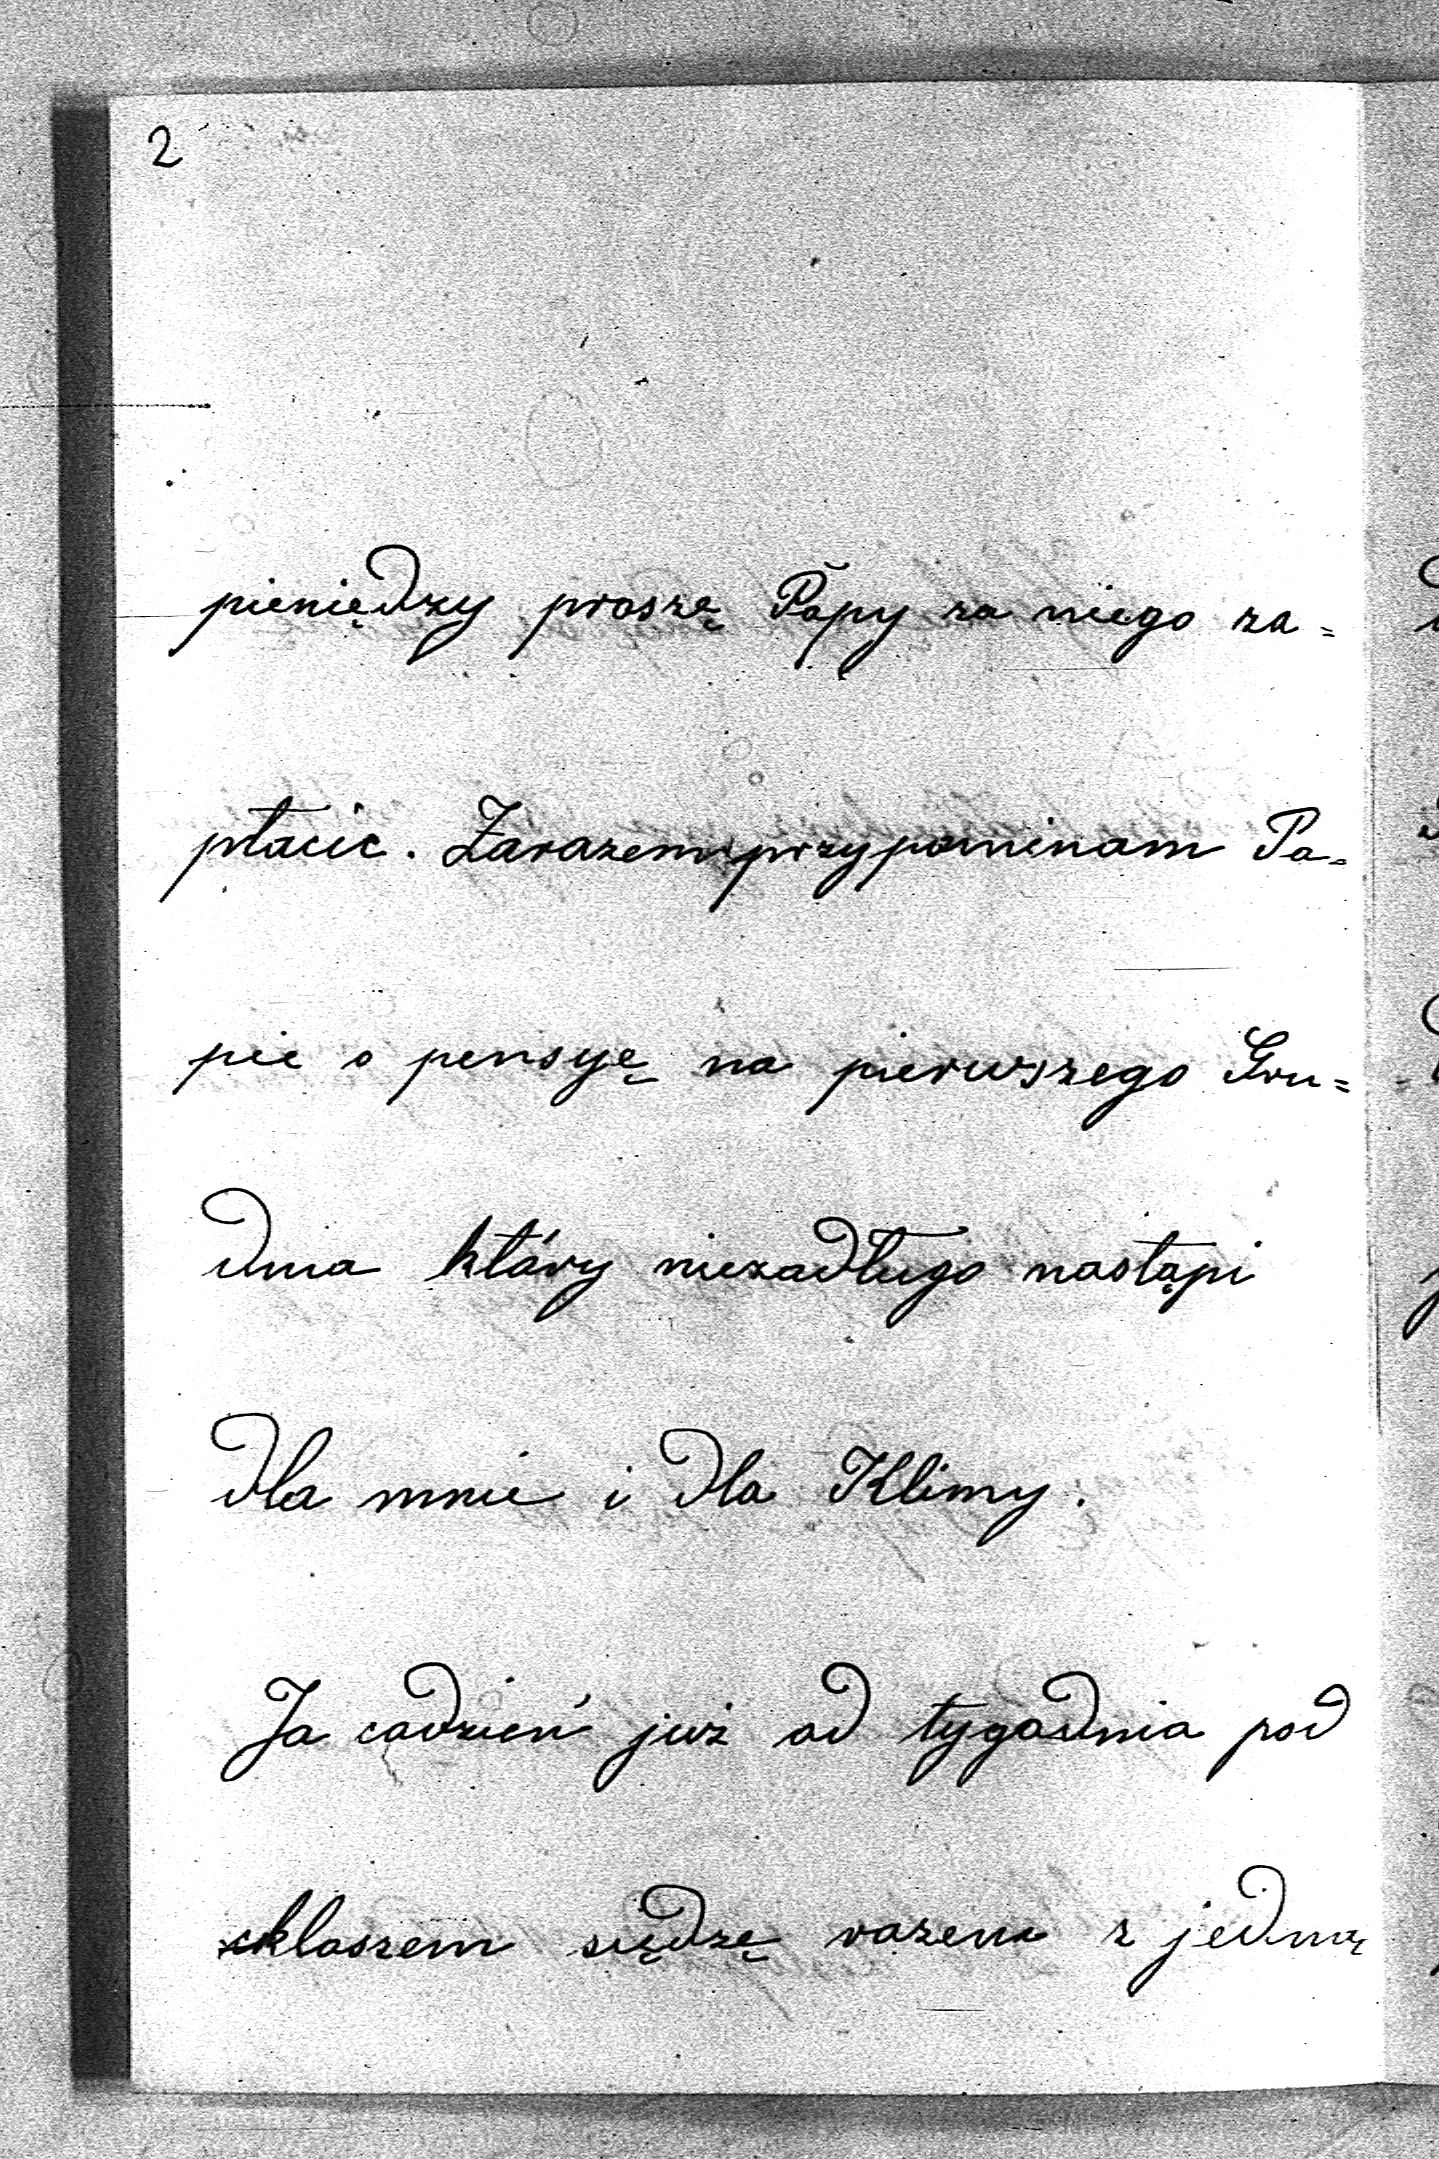 2
pieniędzy proszę Papy za niego za=
płacic. Zarazem przypominam Pa=
pie o pensyę na pierwszego Gru=
dnia który niezadługo nastąpi
dla mnie i dla Klimy.
Ja codzień już od tygodnia pod
kloszem siędzę razem z jedną